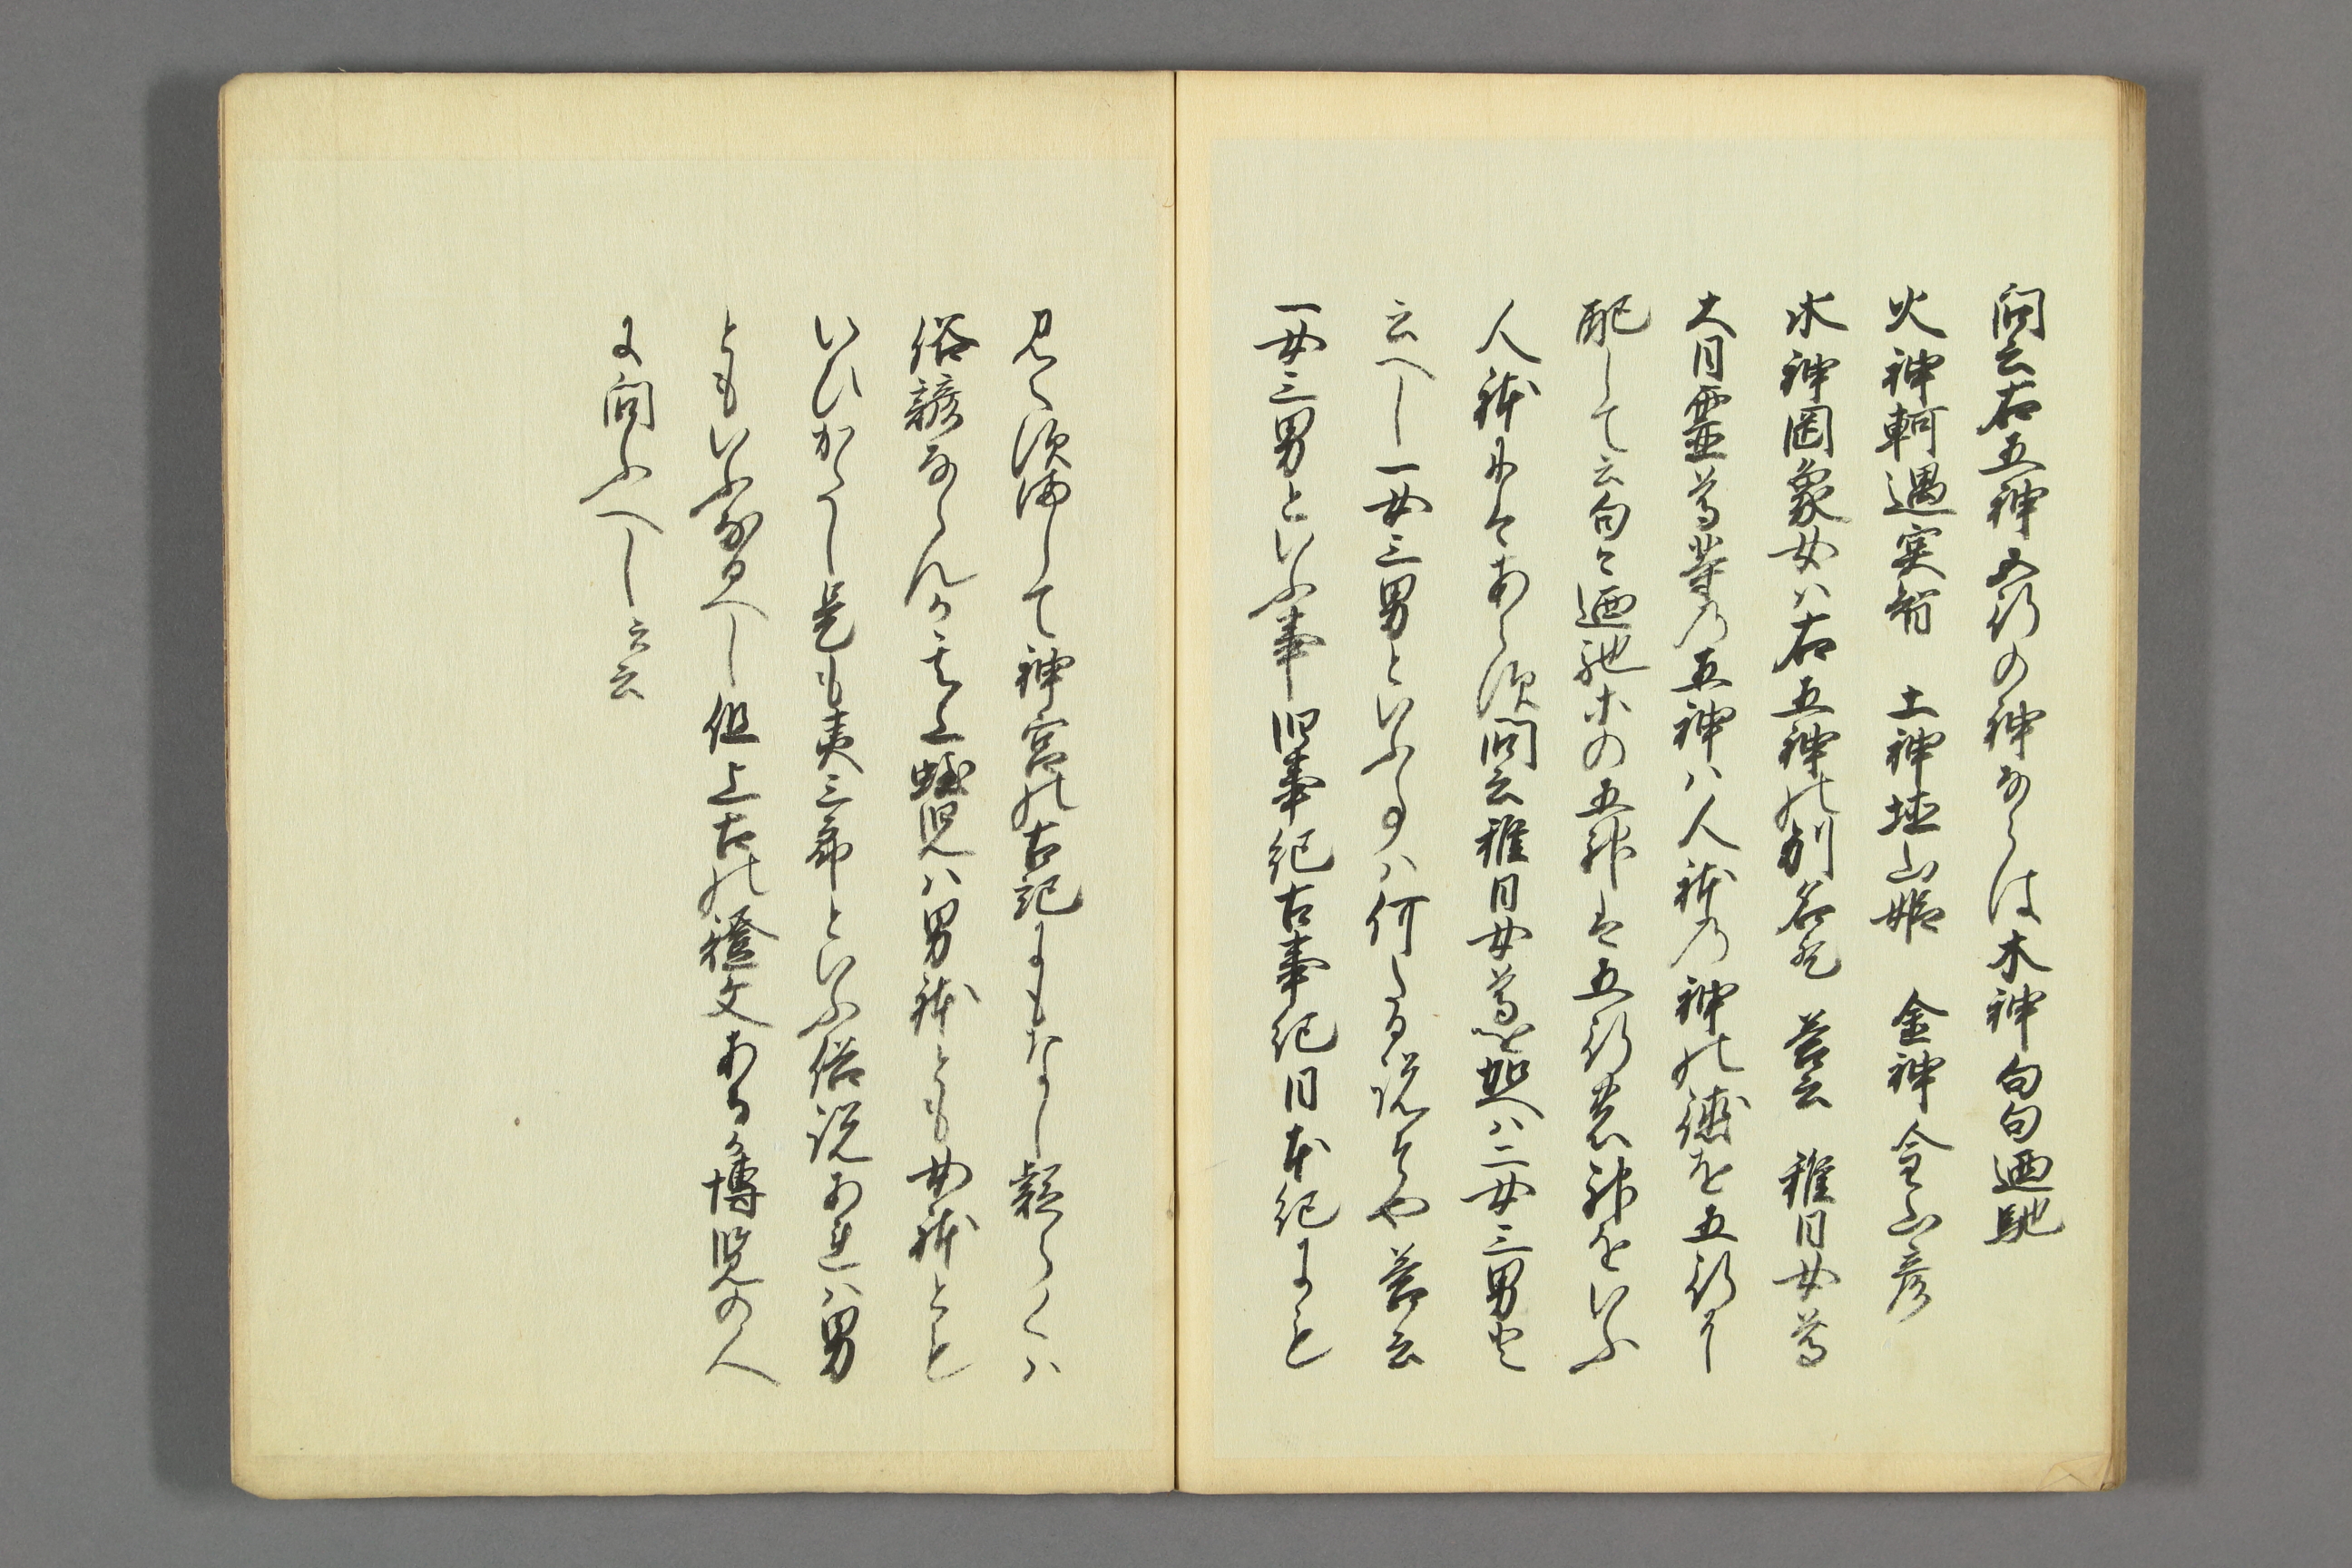 問云右五神五行の神ならは木神句句廼馳
火神軻遇突智　土神埴山姫　金神金山彦
水神罔象女ハ右五神の別名歟　答云　稚日女尊
大日霊尊等乃五神ハ人躰乃神の徳を五行に
配して云句々廼馳木の五神は五行の神をいふ
人躰にてハあらす問云稚日女尊を加へハ二女三男と
云へし一女三男といふ事ハ何たる説そや　答云
一女三男といふ事旧事紀古事紀日本紀にも
見へす而して神宮の古記にもなし疑らくハ
俗諺ならんか其上蛭児ハ男躰とも女躰とも
いひかたし是も夷三郎といふ俗説あれハ男
ともいふなるへし但上古の證文あるか博覧の人
に問ふへし云云